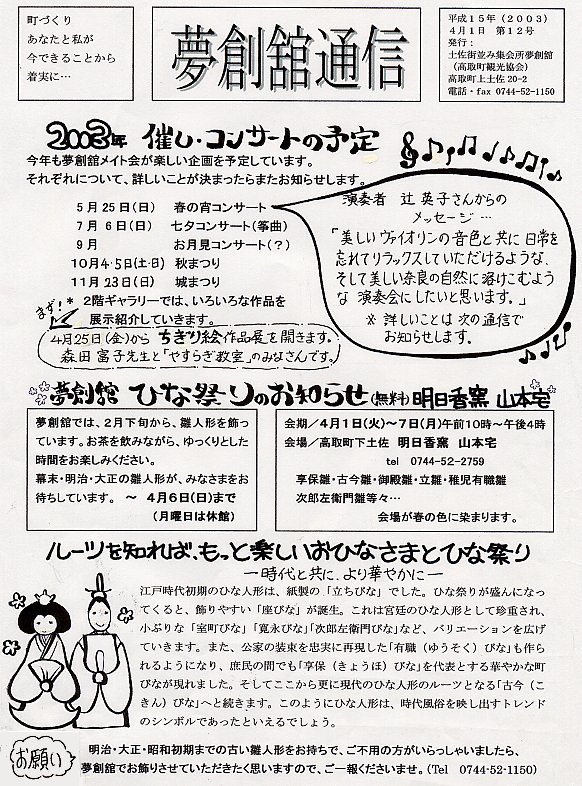 町づくり
あなたと私が
今できることから
着実に…
夢創舘通信
平成15年（2003）
4月1日　第12号
発行：
土佐街並み集会所夢創舘
（高取町観光協会）
高取町上土佐 20-2
電話・fax 0744-52-1150
2003年 催し・コンサートの予定
今年も夢創舘メイト会が楽しい企画を予定しています。
それぞれについて、詳しいことが決まったらまたお知らせします。
5月25日（日）　春の宵コンサート
7月 6日（日）　七夕コンサート（箏曲）
9月　お月見コンサート（？）
10月4・5日（土・日）秋まつり
11月23日（日）　城まつり
まず！
* 2階ギャラリーでは、いろいろな作品を
展示紹介していきます。
4月25日（金）から ちぎり絵作品展を開きます。
森田 富子先生と「やすらぎ教室」のみなさんです。
演奏者　辻 英子さんからの
メッセージ…
「美しいヴァイオリンの音色と共に日常を
忘れてリラックスしていただけるような、
そして美しい奈良の自然に溶けこむよう
な 演奏会にしたいと思います。」
※ 詳しいことは次の通信で
お知らせします。
夢創舘 ひな祭りのお知らせ（無料）明日香窯 山本宅
夢創舘では、2月下旬から、雛人形を飾っ
ています。お茶を飲みながら、ゆっくりとした
時間をお楽しみください。
幕末・明治・大正の雛人形が、みなさまをお
待ちしています。 ～ 4月6日（日）まで
（月曜日は休館）
会期／4月1日（火）～7日（月）午前10時～午後4時
会場／高取町下土佐　明日香窯　山本宅
tel　0744-52-2759
享保雛・古今雛・御殿雛・立雛・稚児有職雛
次郎左衛門雛等々…
会場が春の色に染まります。
ルーツを知れば、もっと楽しいおひなさまとひな祭り
―時代と共に、より華やかに―
江戸時代初期のひな人形は、紙製の「立ちびな」でした。ひな祭りが盛んになっ
てくると、飾りやすい「座びな」が誕生。これは宮廷のひな人形として珍重され、
小ぶりな「室町びな」「寛永びな」「次郎左衛門びな」など、バリエーションを広げ
ていきます。また、公家の装束を忠実に再現した「有職（ゆうそく）びな」も作ら
れるようになり、庶民の間でも「享保（きょうほ）びな」を代表とする華やかな町
びなが現れました。そしてここから更に現代のひな人形のルーツとなる「古今（こ
きん）びな」へと続きます。このようにひな人形は、時代風俗を映し出すトレンド
のシンボルであったといえるでしょう。
お願い
明治・大正・昭和初期までの古い雛人形をお持ちで、ご不用の方がいらっしゃいましたら、
夢創舘でお飾りさせていただきたく思いますので、ご一報くださいませ。（Tel　0744-52-1150）